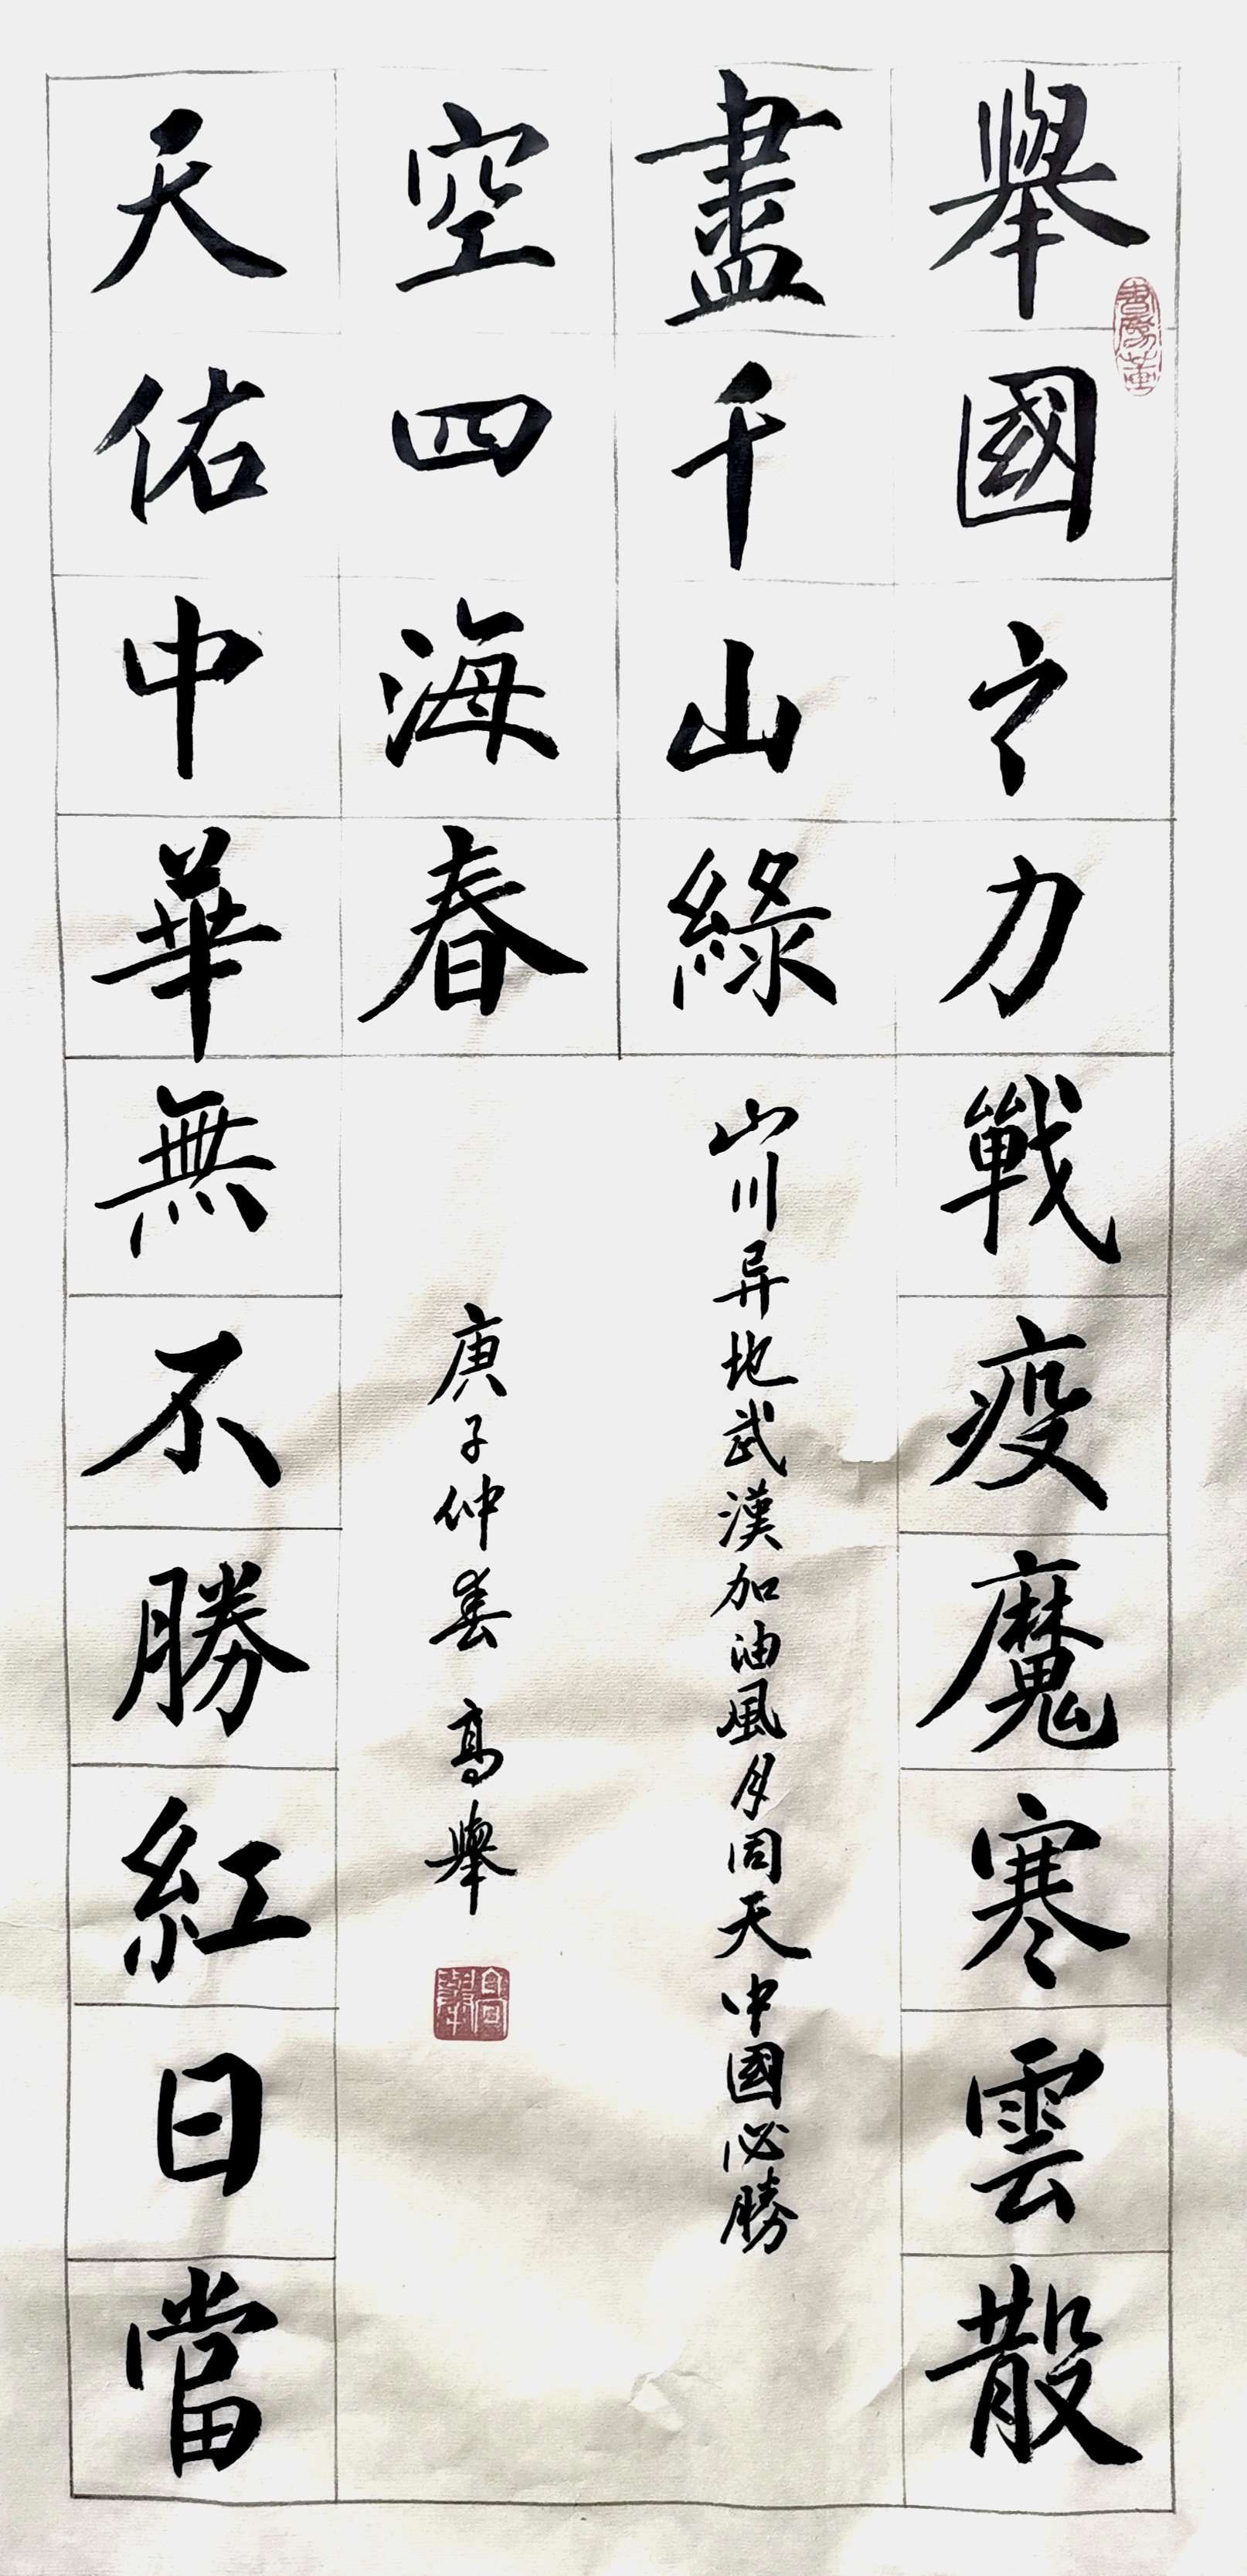 舉國之力戰疫魔寒雲散
盡千山綠
天佑中華無不勝紅日當
空四海春
山川异地武漢加油風月同天中國必勝
庚子仲春 高舉
高舉